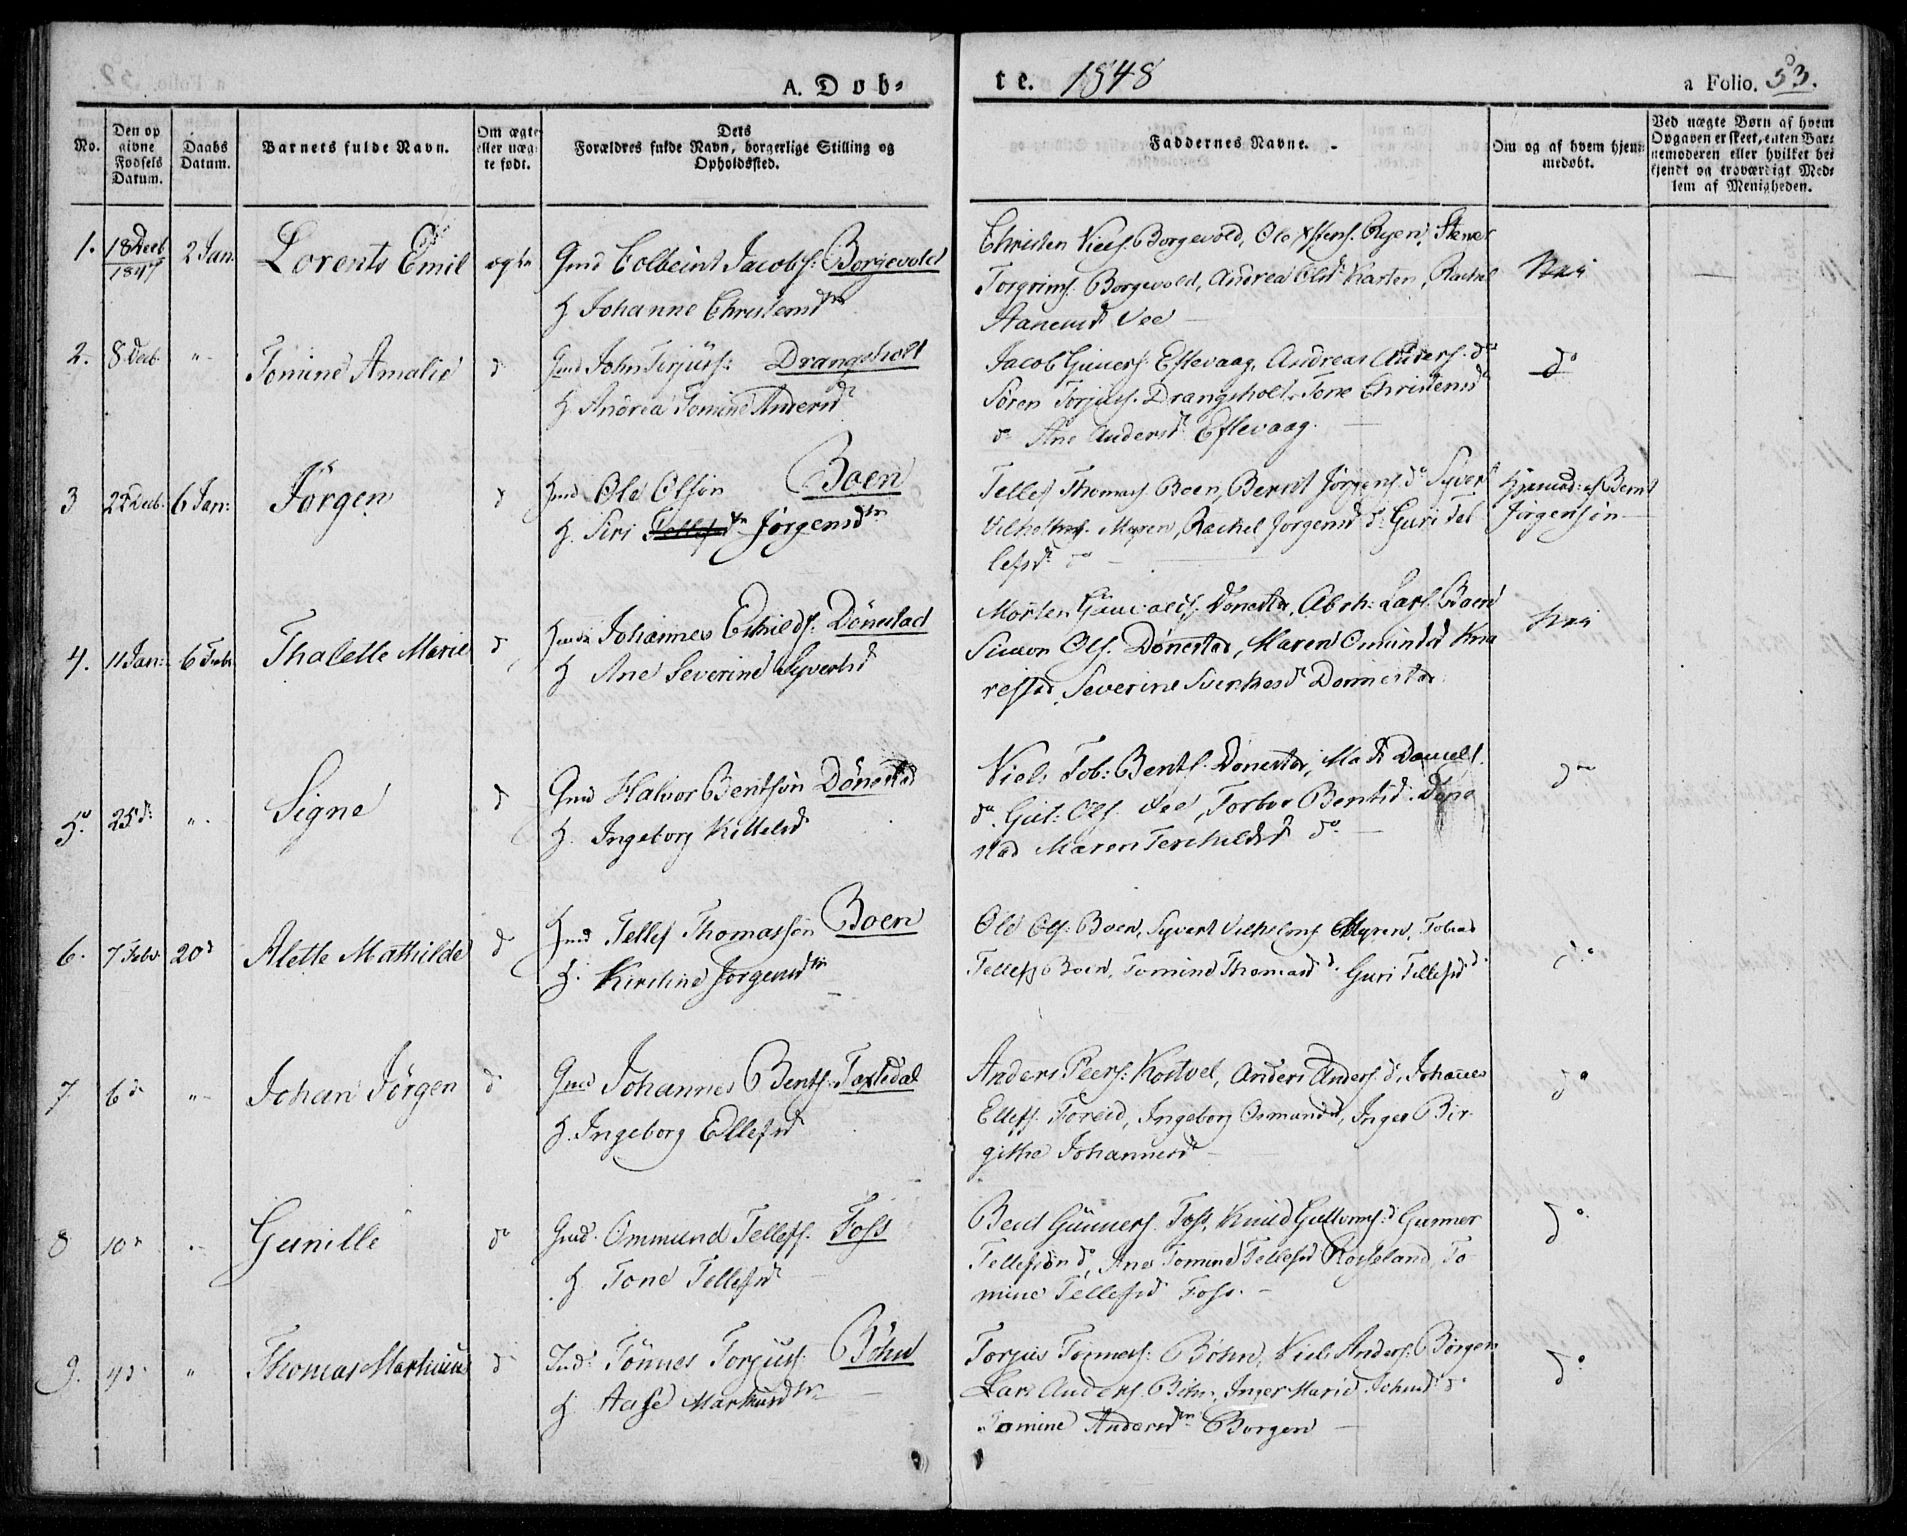 A. Døb-
te. 1848
a Folio. 53.
No.
Den op
givne
Fødsels
Datum.
Daabs
Datum.
Barnets fulde Navn.
Om ægte
eller uæg-
te født.
Dets
Forældres fulde Navn, borgerlige Stilling og
Opholdssted.
Faddernes Navne.
Om og af hvem hjem-
medøbt.
Ved uægte Børn af hvem
Opgaven er skeet, enten Bar-
nemoderen eller hvilket be-
kjendt og troværdigt Med-
lem af Menigheden.
1. 18 Decb 1847 2 Jan Lorents Emil ægte Gmd Colbeint Jacobs: Borgevold
H Johanne Christensdtr
Christen Niels. Borgevold, Ole Ryen,
Torgrims. Borgevold, Andrea Olsd Karten, Rachel
Vee
Nei
2. 8 Decb " Tomine Amalie d Gmd John Terjus: Drangsholt
H Andrea Tomine Andersd
Jacob Guners. Eftevaag, Andreas Anders. do
Søren Torjus. Drangsholt, Tone Christensd
do Ane Andersd Eftevaag.
do
3 22 Decb 6 Jan: Jörgen d Gmd Ole Olsön Boen
H. Siri Jörgensdtr
Tellef Thomas Boen, Bernt Jørgens do Syvert
Vilhelms. Myren, Rachel Jørgensd do Guri Tel
lefsd do
Hjemd: af Bernt
Jørgensön
4. 11 Jan: 6 Feb: Thalette Marie d Johannes Eskilds: Dönestad
H Ane Severine Syvertsd
Morten Dönestad, Abrh: Lars. Boen
Simon Ols. Dönestad, Maren Omundsd Kna
restad, Severine Dönnestad
Nei
5. 25 d: " Signe d Gmd Halvor Bentsön Dönestad
H. Ingeborg Kittelsd
Niels Tob: Bents. Dönestad, Mads Daniels.
do. Gut: Ols. Vee, Torbor Bentsd. Döne
stad Maren Terkildsd do
do
6. 7 Febr 20 d Alette Mathilde d Gmd Tellef Thomassön Boen
H. Kirstine Jørgensdtr
Ole Ols: Boen, Syvert Vilhelms Myren, Tobias
Tellefs Boen, Tomine Thomasd d. Guri Tellefsd d.
do
7 6 d " Johan Jörgen d Gmd Johannes Bents: Toftedal
H. Ingeborg Ellefsd
Anders Peers: Kostvet, Anders Anders. d, Johannes
Ellefs. Foreid, Ingeborg Osmundsd, Inger Bir
githe Johannesd
do
8 10 d " Gunille do Gmd. Ommund Tellefs. Foss
H Tone Tellefsd
Bent Gunners. Foss, Knud Guttorms: d Gunner
Tellefsön do, Ane Tomine Tellefsd Rosseland, To
mine Tellefsd Foss.
do
9. 4 d " Thomas Mathias d Tönnes Torjus: Böhn
H. Aase Markusdtr
Torjus Tönnes: Böhn, Niels Anders: Börgen
Lars Anders. Böhn, Inger Marie Johnsd do
Tomine Andersdtr Borgen
do